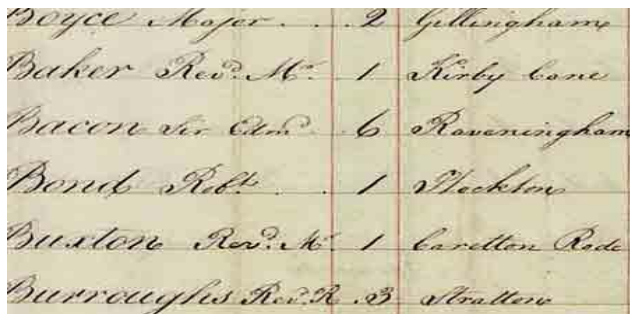 Boyce Major . . 2 Gillingham
Baker Revd. Mr. 1 Kirby Cane
Bacon Sir Edmd. 6 Raveningham
Bond Robt. . . 1 Stockton
Buxton Revd. Mr. 1 Carelton Rode
Burroughs Revd. R. 3 Stratton